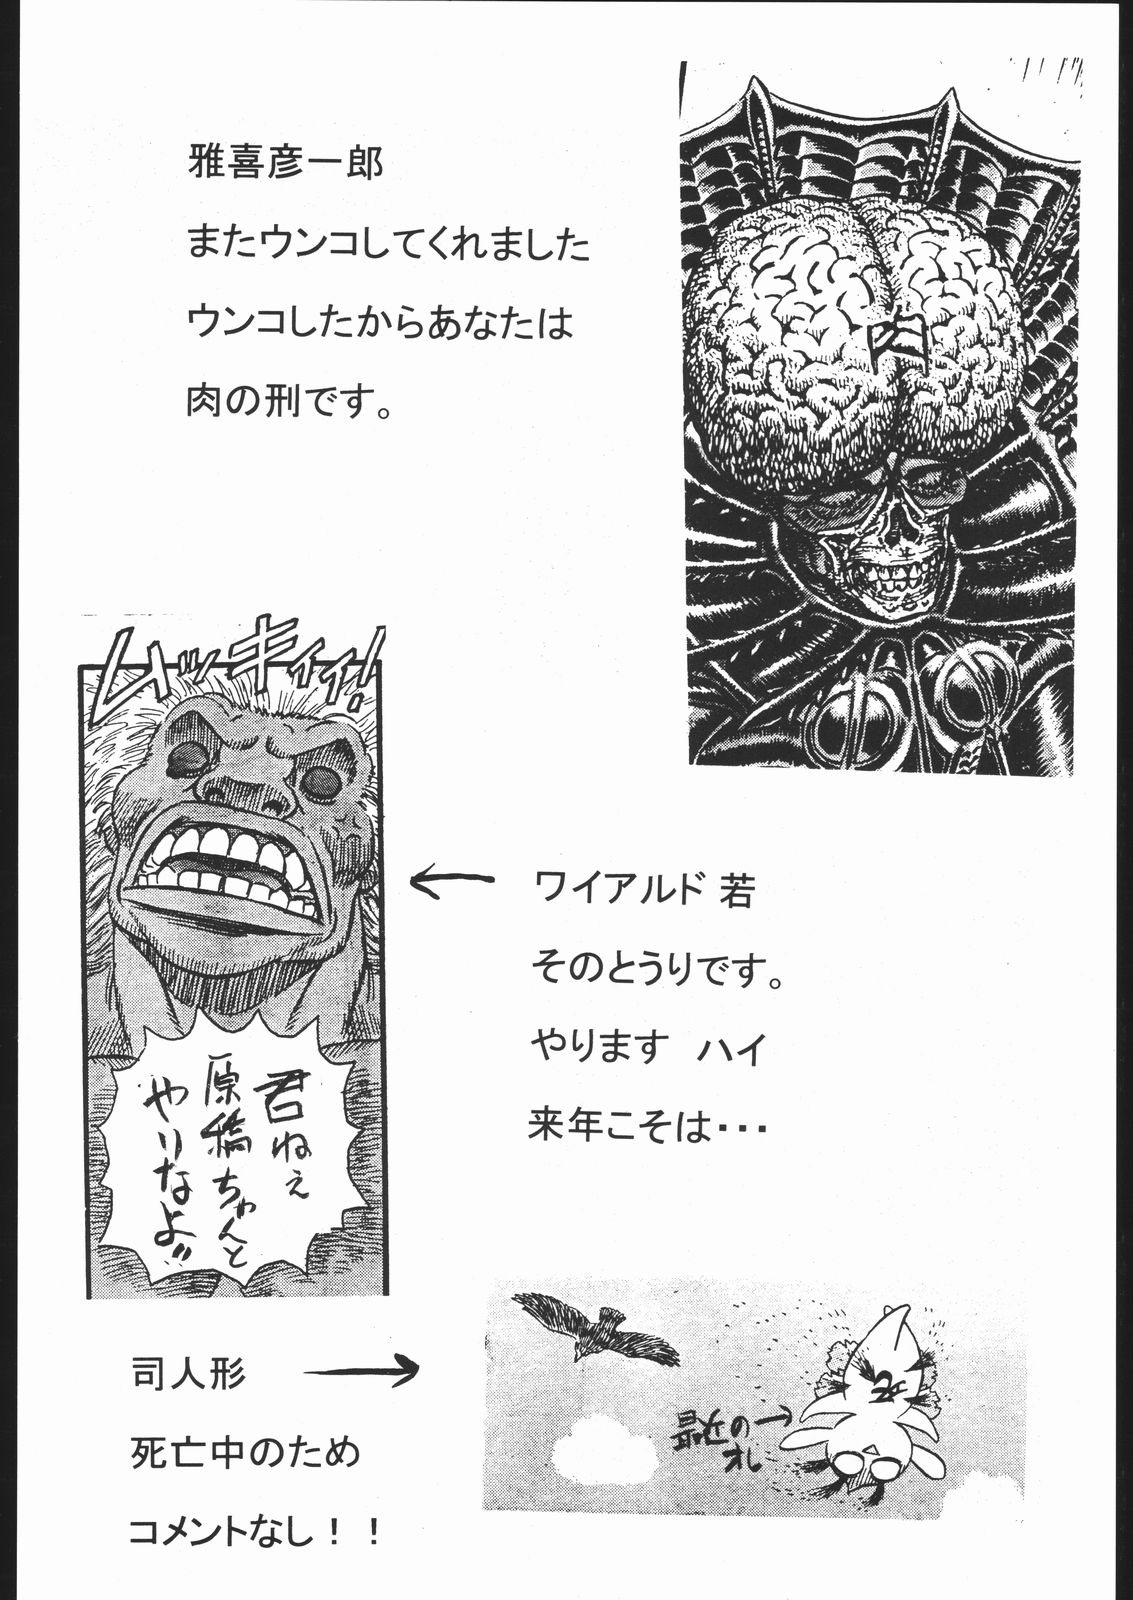 雅喜彦一郎
またウンコしてくれました
ウンコしたからあなたは
肉の刑です。
肉
ムッキィィ!
君ねぇ
原稿ちゃんと
やりなよ!!
ワイアルド 若
そのとうりです。
やります ハイ
来年こそは・・・
司人形
死亡中のため
コメントなし！！
最近の
オレ
死